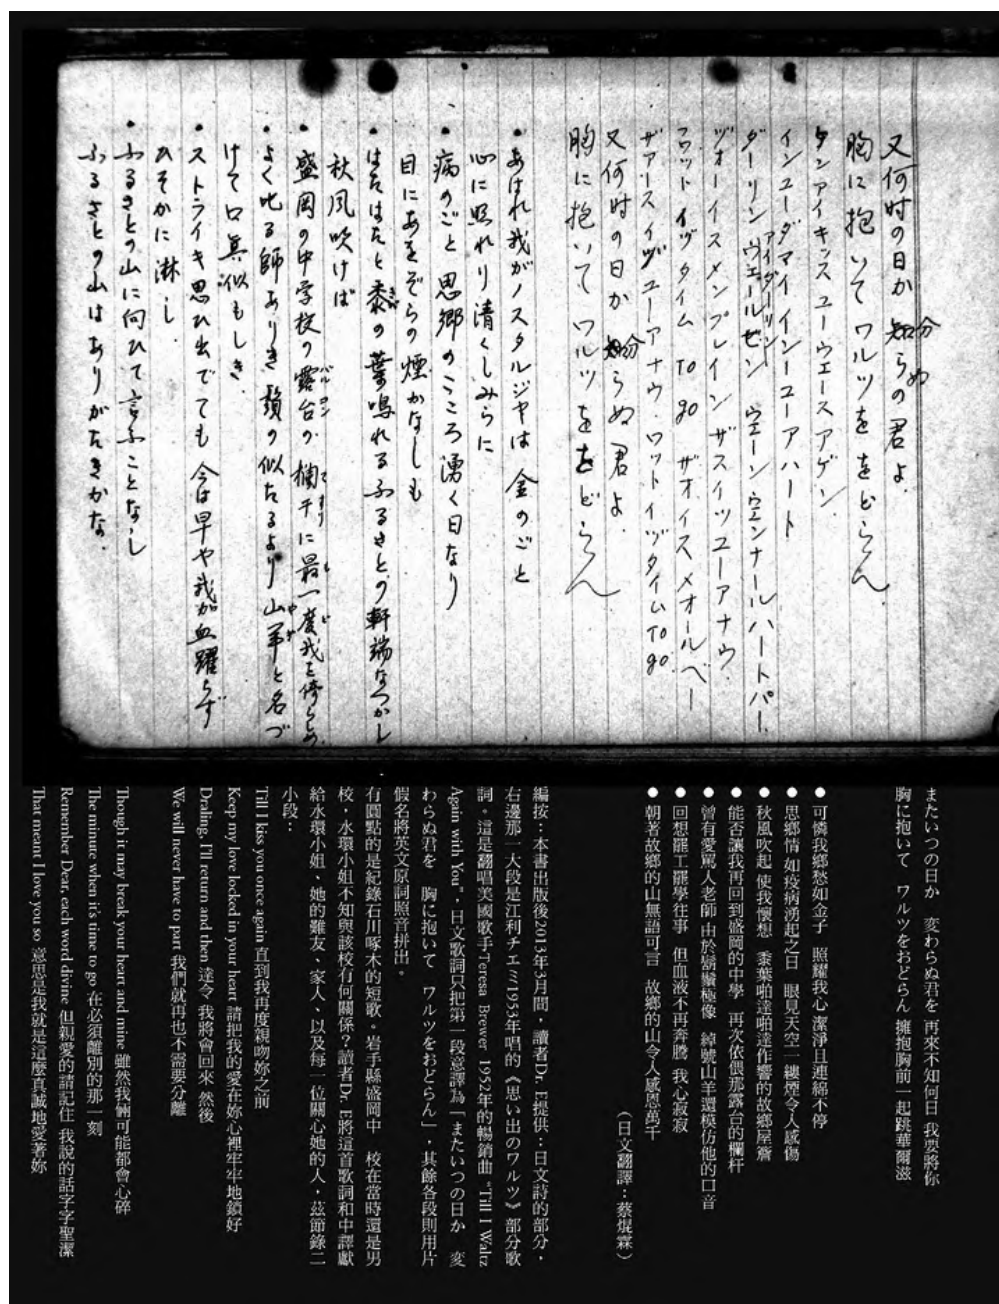 又何時の日か 知らの君よ
分
ぬ
胸に抱いて ワルツををどらん
タンアイキッス ユーウエースアゲン
インユーダマイ インユーアハート
アイダーリン
ダーリン ウエールゼン ウエーン ウエンナールハートパー
ヅオーイスメンブレイン ザスイッツユーアナウ
フワット イヅ タイム TO go ザオイスメオールベー
ザアースイヅ ユーアナウ・ワットイヅタイム TO go
又何時の日か 分らぬ君よ
胸に抱いて ワルツををどらん
・あはれ我がノスタルジヤは 金のごと
心に照れり清くしみらに
・病のごと 思郷のこころ湧く日なり
目にあをぞらの煙かなしも
・はたはたと黍の葉鳴れるふるさとの軒端なつかし
きび
秋風吹けば
・盛岡の中学校の露台の 欄干に最一度我を倚らしめ
バルコン
てすり
もいちど
・よく叱る師ありき 鬚の似たるより山羊と名づ
やぎ
けて口真似もしき
・ストライキ思ひ出でても 今は早や我が血躍らず
ひそかに淋し
・ふるさとの山に向ひて 言ふことなし
ふるさとの山はありがたきかな
またいつの日か 変わらぬ君を 再來不知何日 我要將你
胸に抱いて ワルツをおどらん 擁抱胸前一起跳華爾滋
●可憐我鄉愁如金子 照耀我心 潔淨且連綿不停
●思鄉情 如疫病湧起之日 眼見天空一縷煙令人感傷
●秋風吹起 使我懷想 黍葉啪達啪達作響的故鄉屋簷
●能否讓我再回到盛岡的中學 再次依偎那露台的欄杆
●曾有愛罵人老師 由於鬍鬚極像 綽號山羊還模仿他的口音
●回想罷工罷學往事 但血液不再奔騰 我心寂寂
●朝著故鄉的山無語可言 故鄉的山令人感恩萬千
(日文翻譯：蔡焜霖)
編按：本書出版後2013年3月間，讀者Dr. E提供：日文詩的部分，
右邊那一大段是江利チエミ1953年唱的《思い出のワルツ》部分歌
詞。這是翻唱美國歌手Teresa Brewer 1952年的暢銷曲 "Till I Waltz
Again with You"，日文歌詞只把第一段意譯為「またいつの日か 変
わらぬ君を 胸に抱いて ワルツをおどらん」，其餘各段則用片
假名將英文原詞照音排出。
有圓點的是紀錄石川啄木的短歌。岩手縣盛岡中 校在當時還是男
校，水環小姐不知與該校有何關係？讀者Dr. E將這首歌詞和中譯獻
給水環小姐、她的難友、家人、以及每一位關心她的人，茲節錄二
小段：
Till I kiss you once again 直到我再度親吻妳之前
Keep my love locked in your heart 請把我的愛在妳心裡牢牢地鎖好
Draling, I'll return and then 達令 我將會回來 然後
We will never have to part 我們就再也不需要分離
Though it may break your heart and mine 雖然我倆可能都會心碎
The minute when it's time to go 在必須離別的那一刻
Remember Dear, each word divine 但親愛的請記住 我說的話字字聖潔
That meant I love you so 意思是我就是這麼真誠地愛著妳